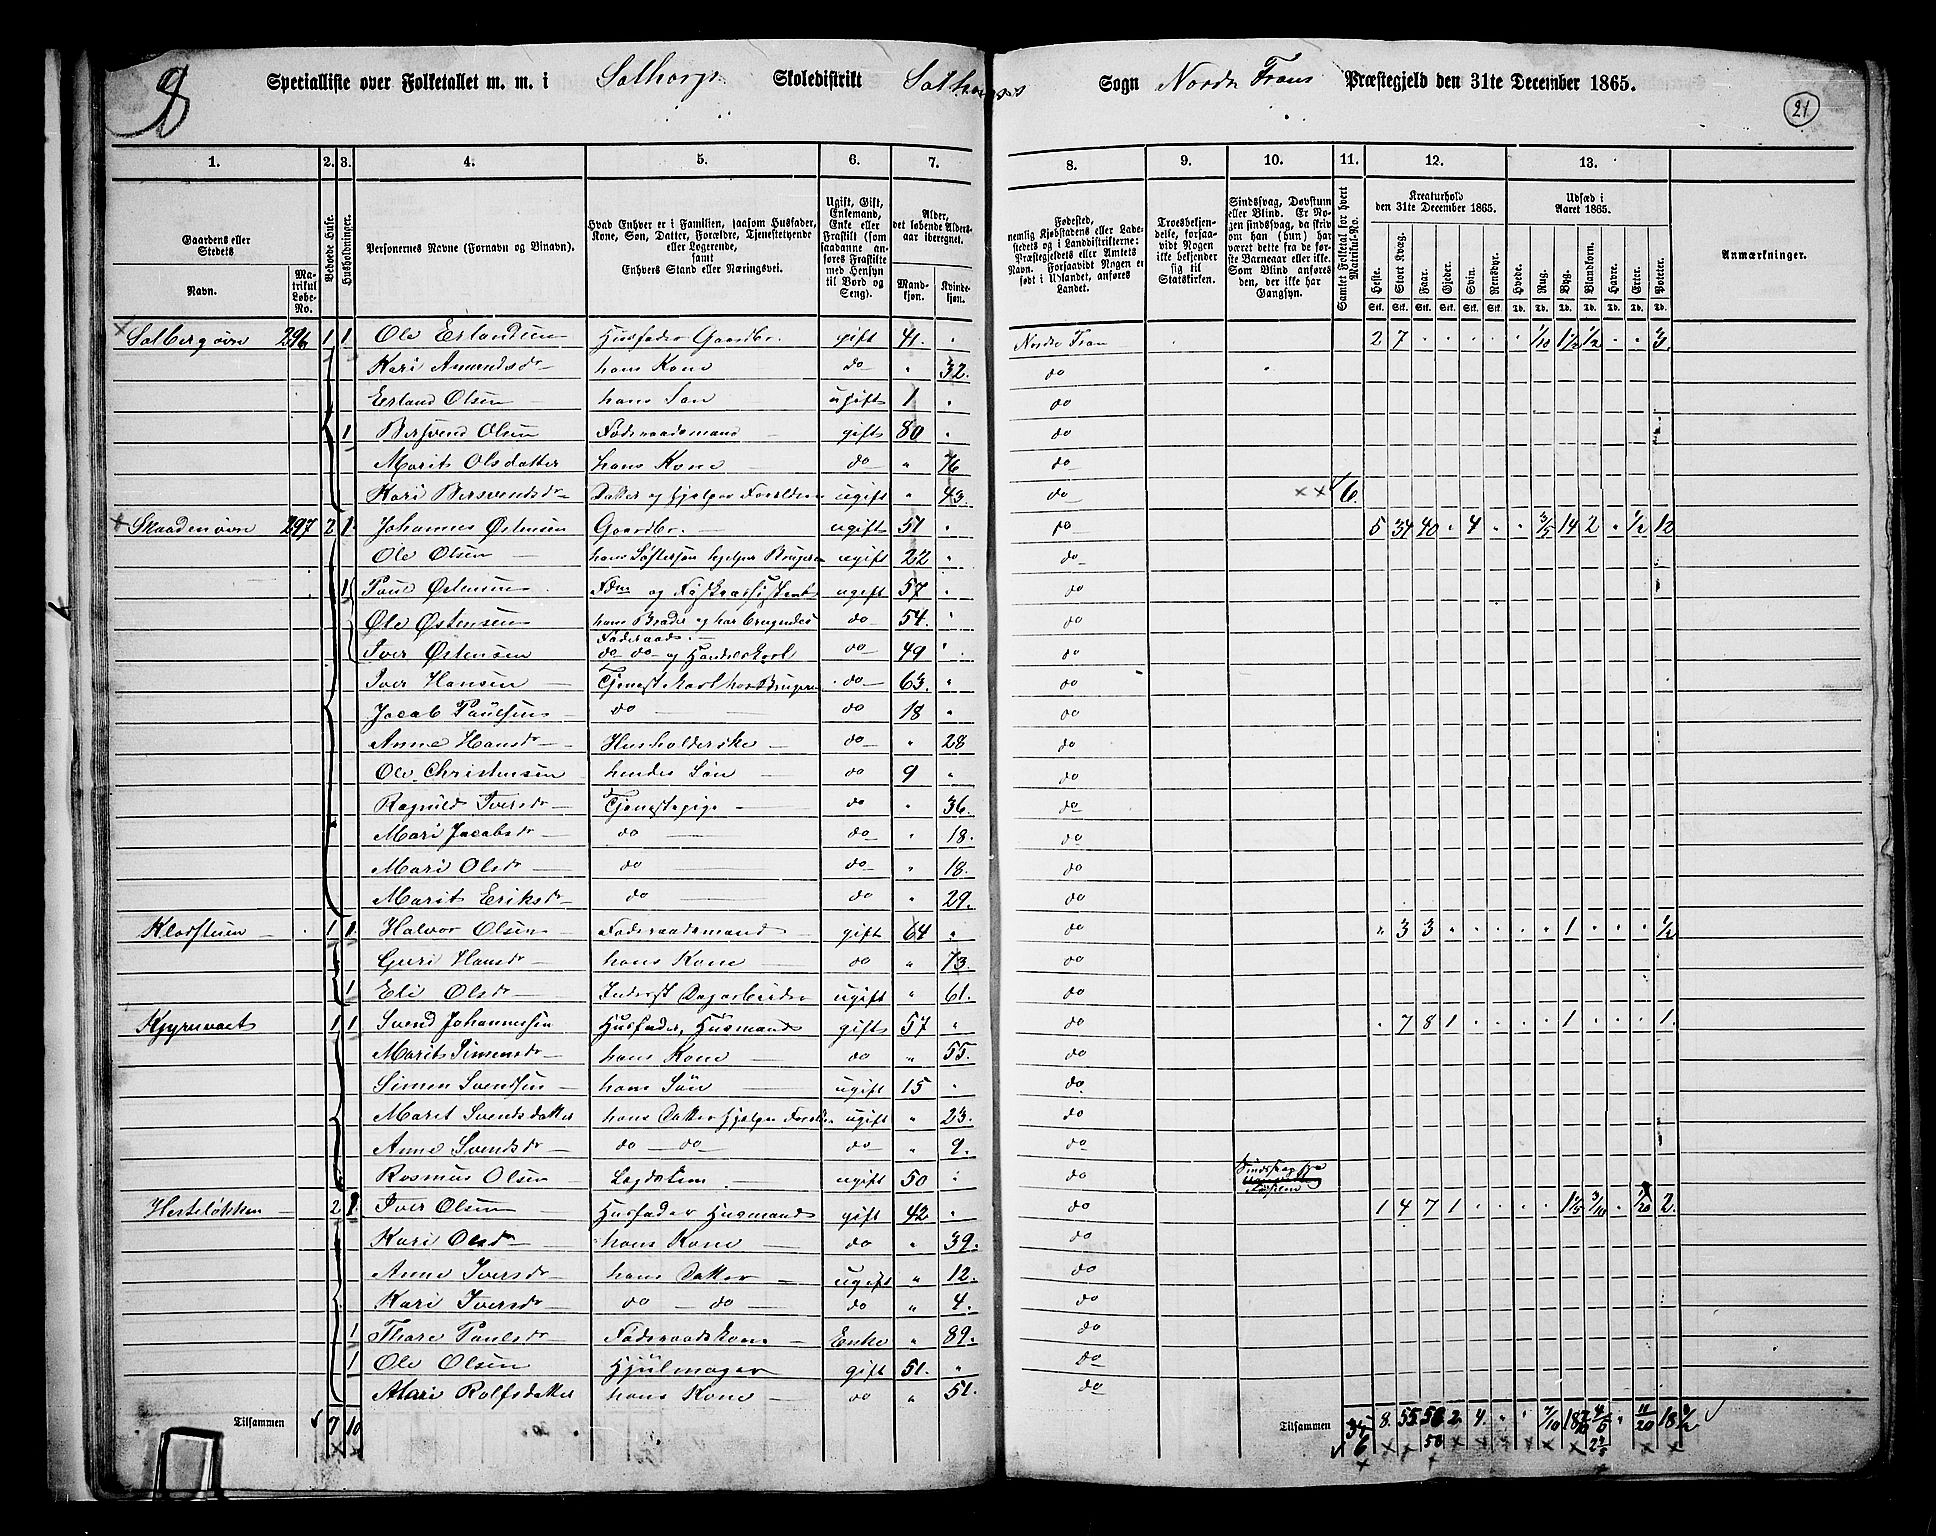 Speciallifte over Folketallet m. m. i Solhorgs Skoledistrikt Solhorgs Sogn Nordre Frons Præstegjeld den 31te December 1865.
21
1. 2. 3. 4. 5. 6. 7. 8. 9. 10. 11. 12. 13.
Gaardens eller Stedets Navn. Matrikul Løbe-No.
Bebodde Huse.
Husholdninger.
Personernes Navne (Fornavn og Binavn).
Hvad Enhver er i Familien, saasom Husfader, Kone, Søn, Datter, Forældre, Tjenestetyende eller Logerende, samt Enhvers Stand eller Næringsvei.
Ugift, Gift, Enkemand, Enke eller Fraskilt (som saadanne anføres Fraskilte med Hensyn til Bord og Seng).
Alder, det løbende Aldersaar iberegnet. Mandkjøn. Kvindekjøn.
Fødested, nemlig Kjøbstadens eller Ladestedets og i Landdistrikterne: Præstegjeldets eller Amtets Navn. Forsaavidt Nogen er født i Udlandet, anføres Landet.
Troesbekjendelse, forsaavidt Nogen ikke bekjender sig til Statskirken.
Sindssvag, Døvstum eller Blind. Er Nogen sindssvag, da skriv om han (hun) har været dette fra de første Barneaar eller ikke. Som Blind anføres den, der ikke har Gangsyn.
Samlet Folketal for hvert Matrikul-No.
Kreaturhold den 31te December 1865. Heste. Stort Kvæg. Faar. Gjeder. Svin. Rensdyr.
Udsæd i Aaret 1865. Hvede. Rug. Byg. Blandkorn. Havre. Erter. Poteter.
Anmærkninger.
Solbergøvn 296 1 1 Ole Erlandsen Husfader Gaardbr. gift 41. Nordre Fron 2 7 1/10 1 1/2 1/2 3.
Kari Amundsdr hans Kone do 32. do
Erland Olsen hans Søn ugift 1 do
1 Bersvend Olsen Føderaadsmand gift 80 do
Marit Olsdatter hans Kone do 76 do
Kari Bersvendsdr Datter og hjelper Forældrene ugift 43. do 6.
297 2 1 Johannes Østensen Gaardbr. ugift 51 do 5 34 40 4 14 2 1/2 12
Ole Olsen hans Søstersøn hjelper Brugeren ugift 22 do
1 Poul Østensen ugift 57 do
Ole Østensen hans Broder og har Føderaad do 54. do
Iver Østensen do do og Handelskarl do 49 do
Iver Hansen Tjenestkarl hos Brugeren do 63. do
Jacob Paulsen do do 18 do
Anne Hansdr Husholderske do 28 do
Ole Christensen hendes Søn do 9 do
Ragnild Iversdr Tjenestepige do 36. do
Mari Jacobsdr do do 18. do
Mari Olsdr do do 18. do
Marit Eriksdr do do 29. do
Kladstuen 1 1 Halvor Olsen Føderaadsmand gift 64 do 3 3 1 1/2
Guri Hansdr hans Kone do 73. do
1 Eli Olsdr Inderst Dagarbeider ugift 61. do
1 1 Svend Johannessen Husfader, Husmand gift 57 do 7 8 1 1 1.
Marit Simensdr hans Kone do 55. do
Simen Svendsen hans Søn ugift 15 do
Marit Svendsdatter hans Datter hjelper Forældrene ugift 23. do
Anne Svendsdr do do do 9. do
Rasmus Olsen Lægdslem ugift 50 do
Hesteløkken 2 1 Iver Olsen Husfader Husmand gift 42 do 1 4 7 1 3/10 1/20 2.
Kari Olsdr hans Kone do 39. do
Anne Iversdr hans Datter ugift 12. do
Kari Iversdr do do do 4. do
1 Thore Paulsdr Føderaadskone Enke 89. do
1 Ole Olsen Hjulmager gift 51. do
Mari Rolfsdatter hans Kone do 51. do
Tilsammen 7 10 Tilsammen 8. 55 2 4. 7/10 11/20 18 1/2
6 50